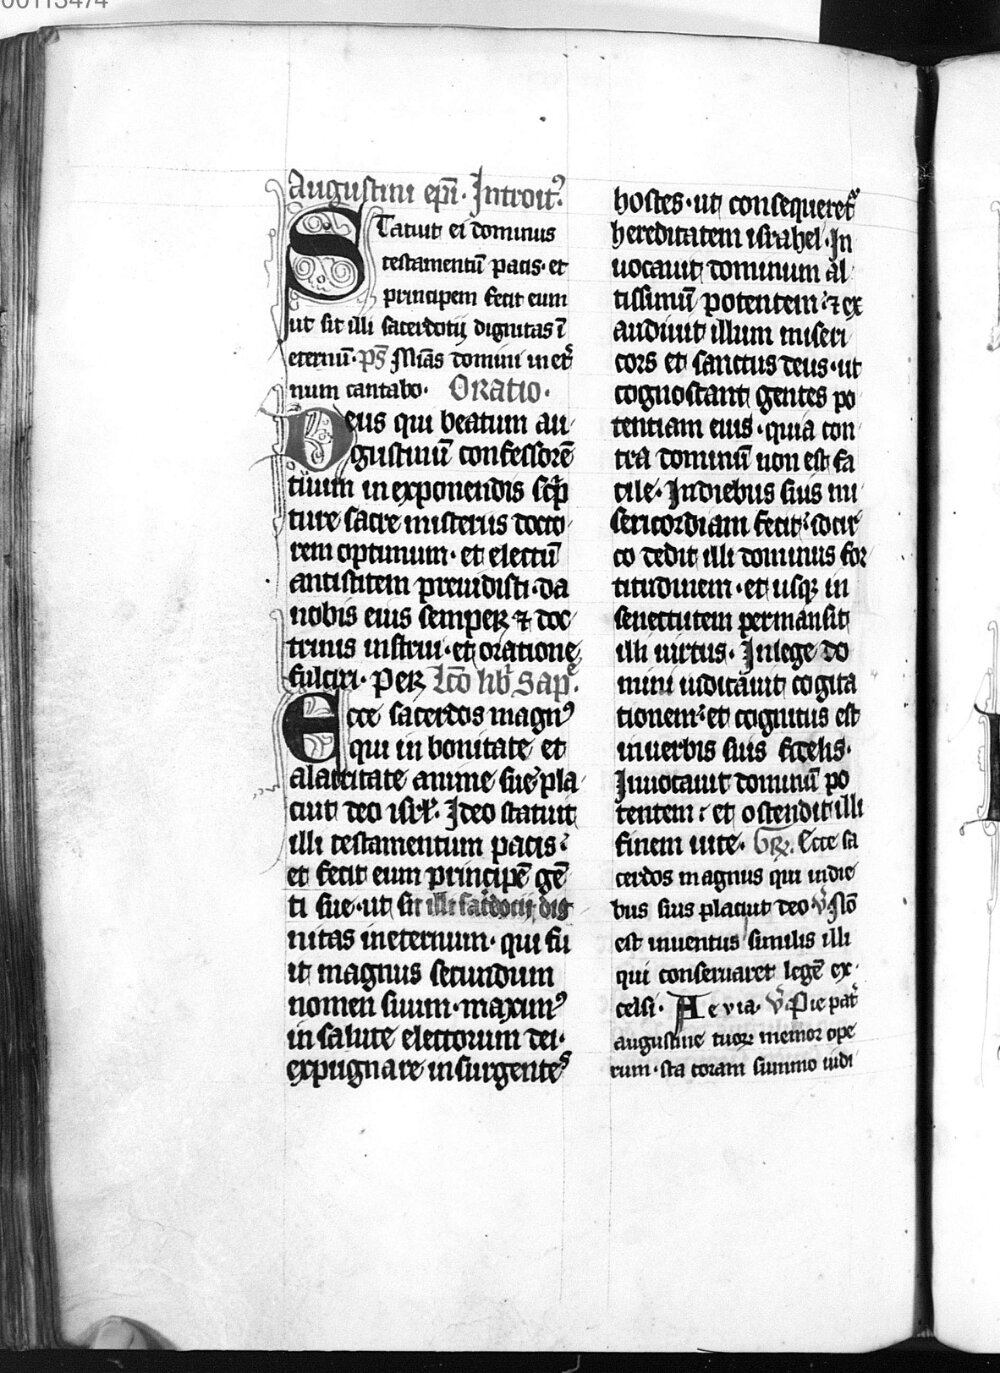 00113474
Augustini ep̅i. Introitꝰ.
STatuit ei dominus
testamentu̅ pacis. et
principem fecit eum
ut sit illi sacerdotij dignitas i̅
eternu̅. ps̅ Mi̅as domini in et̾
num cantabo. Oratio.
Deus qui beatum au
gustinu̅ confessore̅
tuum in exponendis sc̅p
ture sacre misteriis docto
rem optimum. et electu̅
antistitem preuidisti. da
nobis eius semper ⁊ doc
trinis instrui. et oratione
fulciri. Per Lc̅o lib̾ Sap̅.
Ecce sacerdos magnꝰ
qui in bonitate et
alacritate anime sue pla
cuit deo isrl̅. Ideo statuit
illi testamentum pacis.
et fecit eum principe̅ ge̅
ti sue. ut sit illi sac̾docij dig
nitas ineternum. qui fu
it magnus secundum
nomen suum. maximꝰ
in salute electorum dei.
expugnare insurgentes
hostes. ut consequeret᷑
hereditatem israhel. In
uocauit dominum al
tissimu̅ potentem. ⁊ ex
audiuit illum miseri
cors et sanctus deus. ut
cognoscant gentes po
tentiam eius. quia con
tra dominu̅ non est fa
cile. In diebus suis mi
sericordiam fecit. idcir
co dedit illi dominus for
titudinem. et usq̨ in
senectutem permansit
illi uirtus. In lege do
mini iudicauit cogita
tionem. et cognitus est
inuerbis suis fidelis.
Inuocauit dominu̅ po
tentem. et ostendit illi
finem uite. Gr̅. Ecce sa
cerdos magnus qui indie
bus suis placuit deo ℣ No̅
est inuentus similis illi
qui conseruaret lege̅ ex
celsi. Ae via. ℣. Pie pat̾
augustine tuoꝝ memor ope
rum. sta coram summo iudi